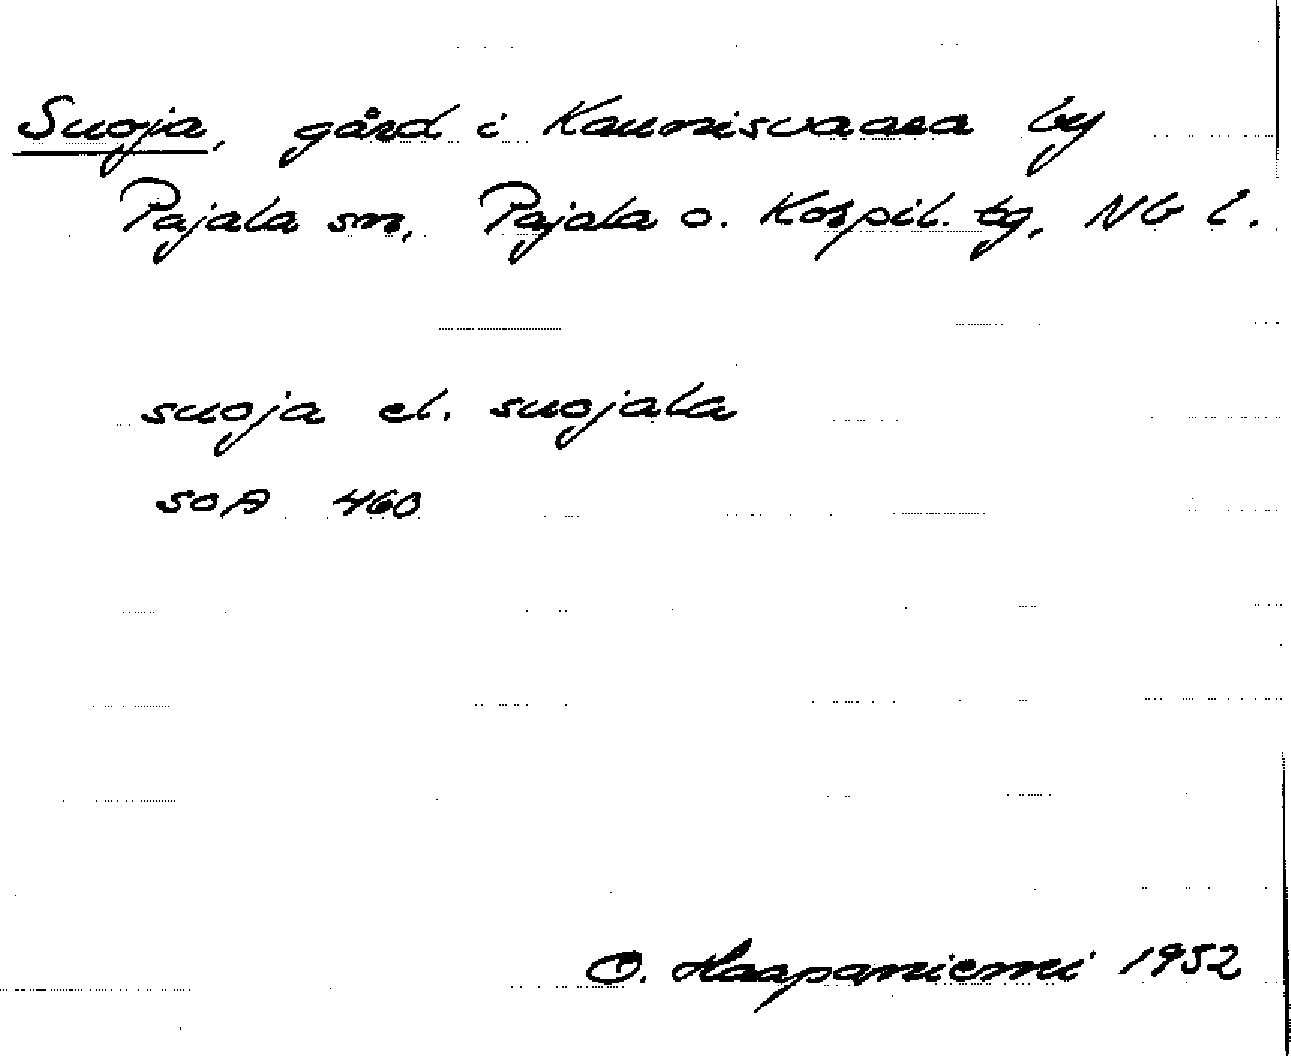 Suoja, gård i Kaunisvaara by
Pajala sn, Pajala o. Korpil. tg, NB l.
suoja el. suojala
SOA 460
O. Haapaniemi 1952